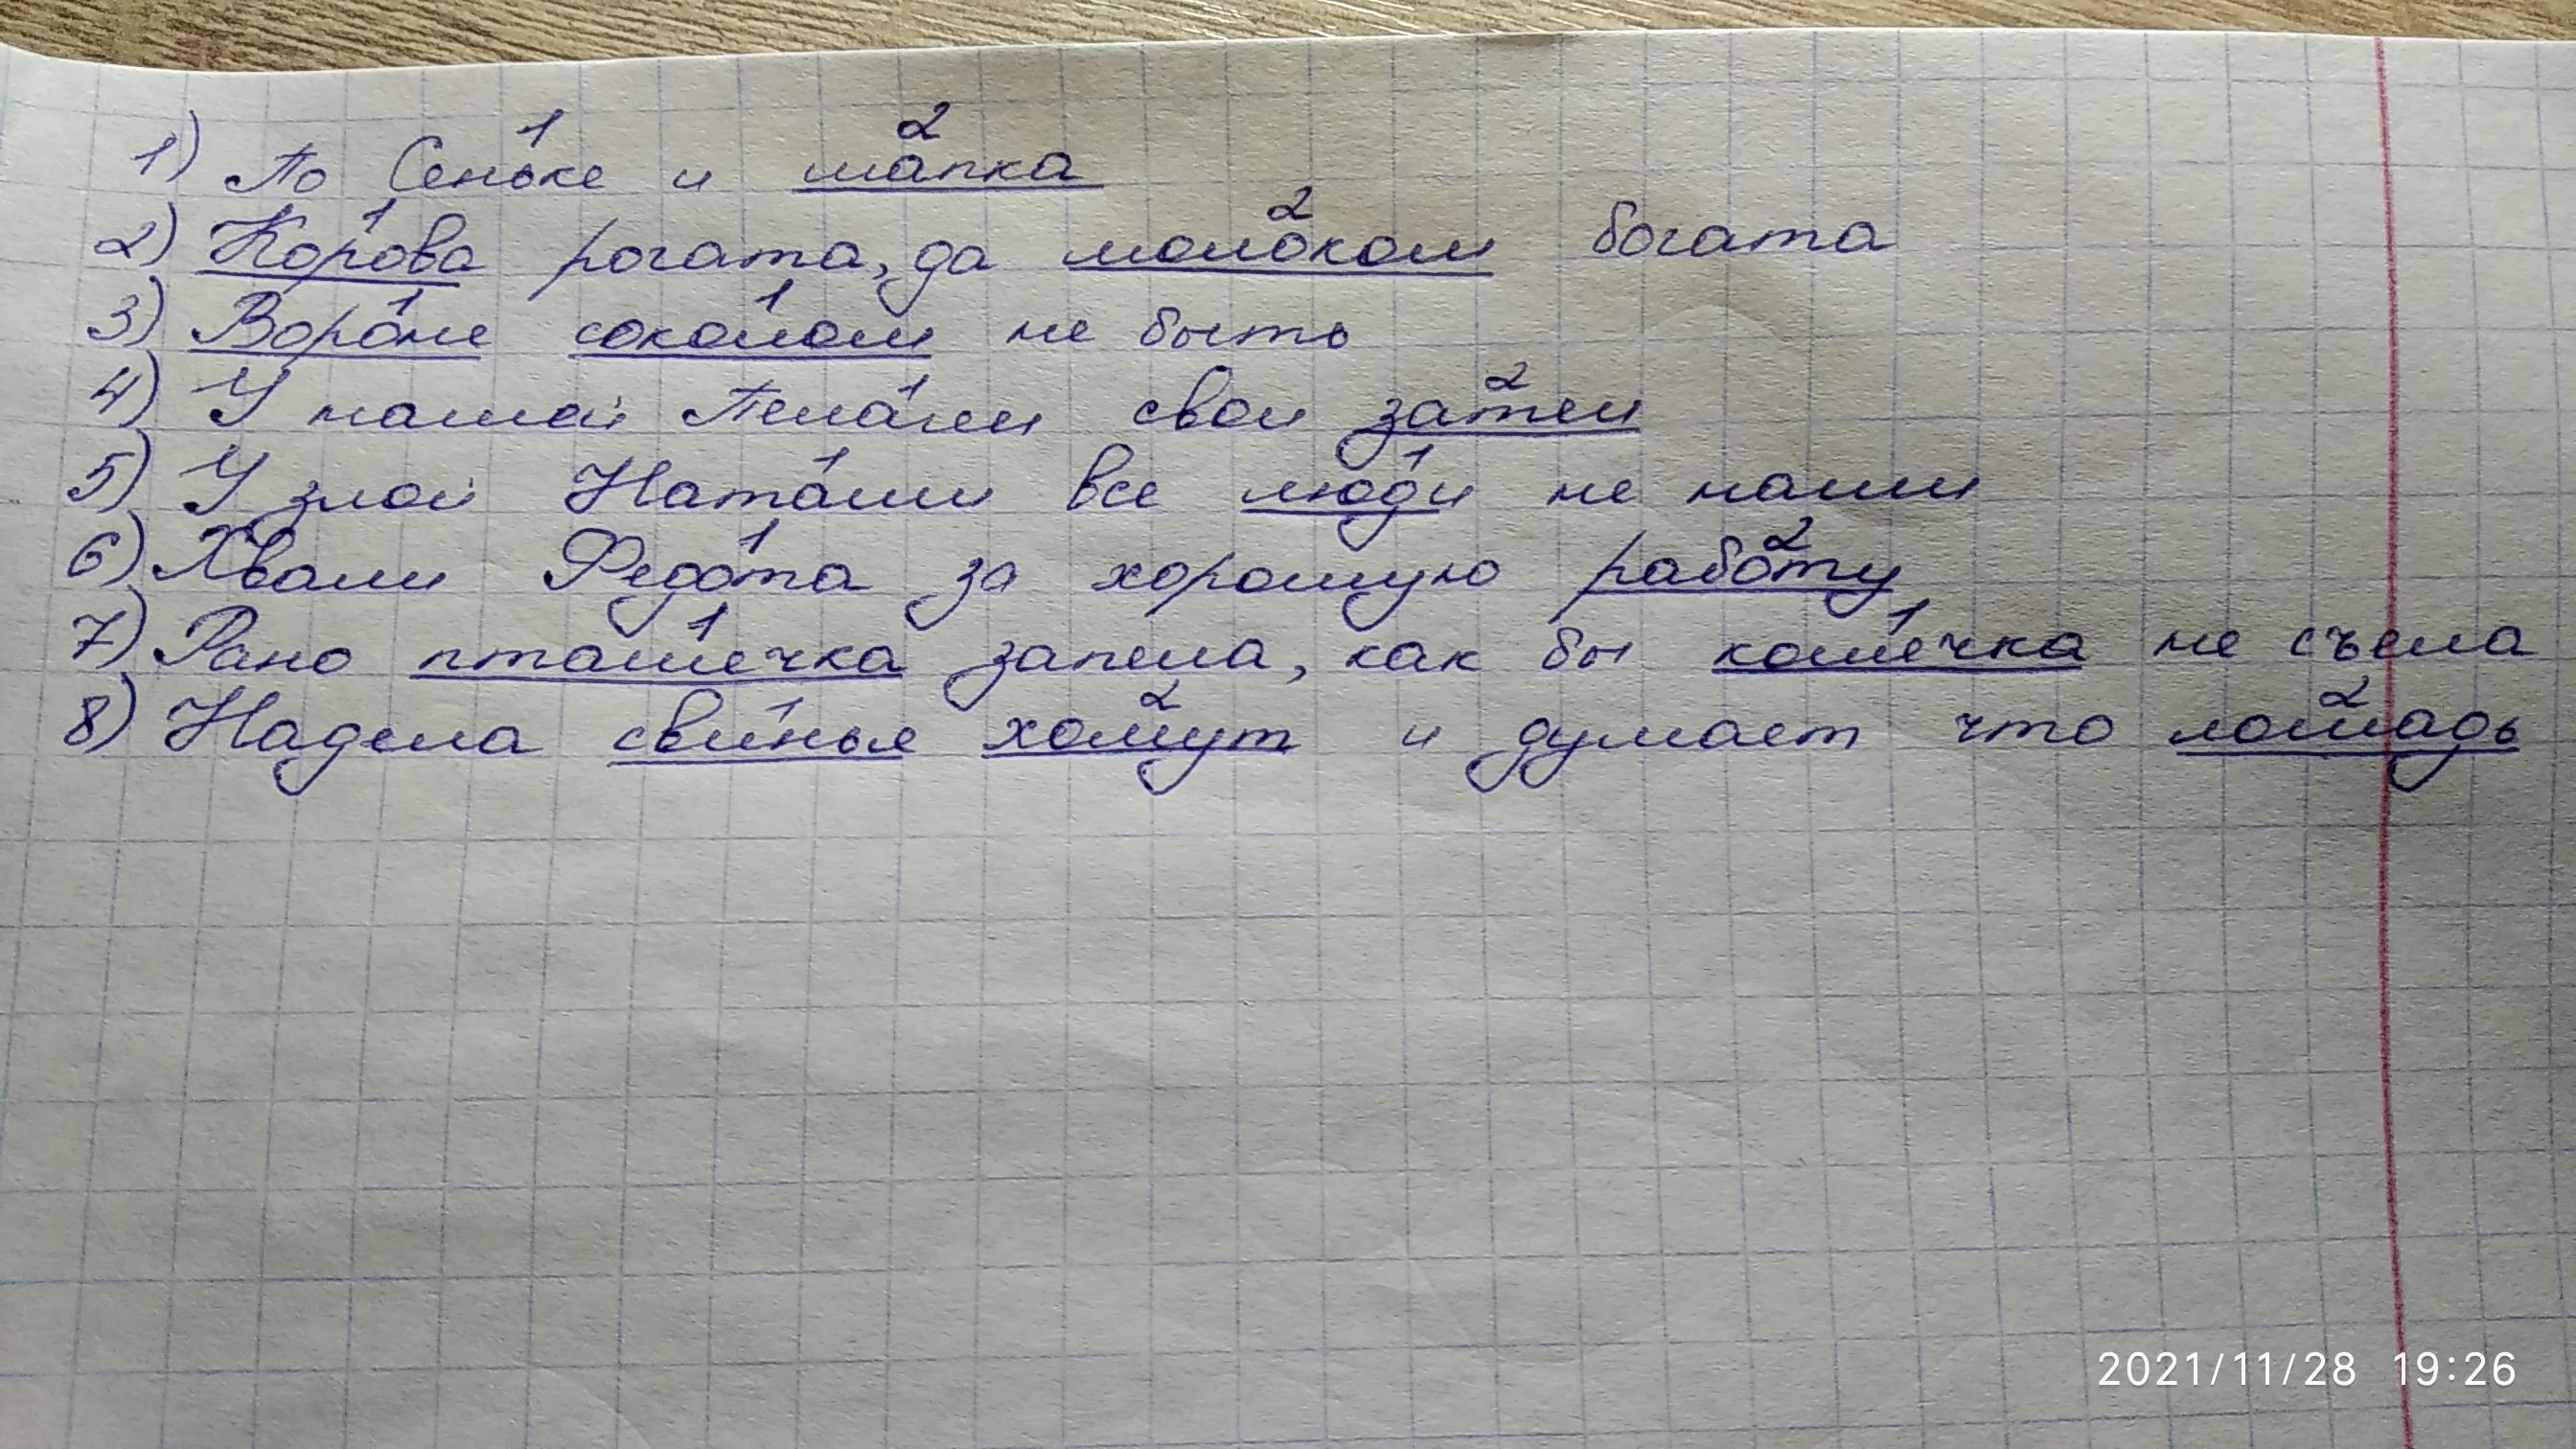 1) По Сеньке и шапка
1 2
2) Корова рогата, да молоком богата
1 2
3) Вороне соколом не быть
1 1
4) У нашей Пелагеи свои затеи
1 2
5) У злой Наташи все люди не наши
1 1
6) Хвали Федота за хорошую работу
1 2
7) Рано пташечка запела, как бы кошечка не съела
1 1
8) Надела свинье хомут и думает что лошадь
1 2 2
2021/11/28 19:26